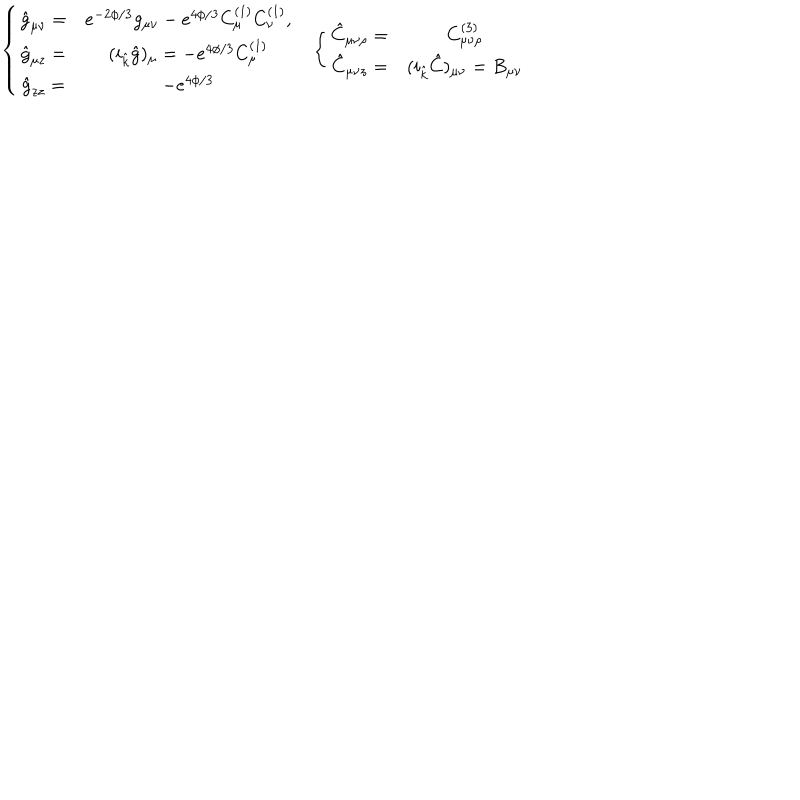 \left\{ \begin{array}{cc} \hat{g}_{\mu\nu} = & e^{-2\phi/3} g_{\mu\nu} - e^{4\phi/3} C^{(1)}_{\mu} C^{(1)}_{\nu}, \\ \hat{g}_{\mu z} = & (i_{\hat{k}} \hat{g})_{\mu} = -e^{4\phi/3} C^{(1)}_{\mu} \\ \hat{g}_{zz} = & -e^{4\phi/3} \end{array} \right. \left\{ \begin{array}{cc} \hat{C}_{\mu\nu\rho} = & C^{(3)}_{\mu\nu\rho} \\ \hat{C}_{\mu\nu z} = & (i_{\hat{k}} \hat{C})_{\mu\nu} = B_{\mu\nu} \end{array} \right.